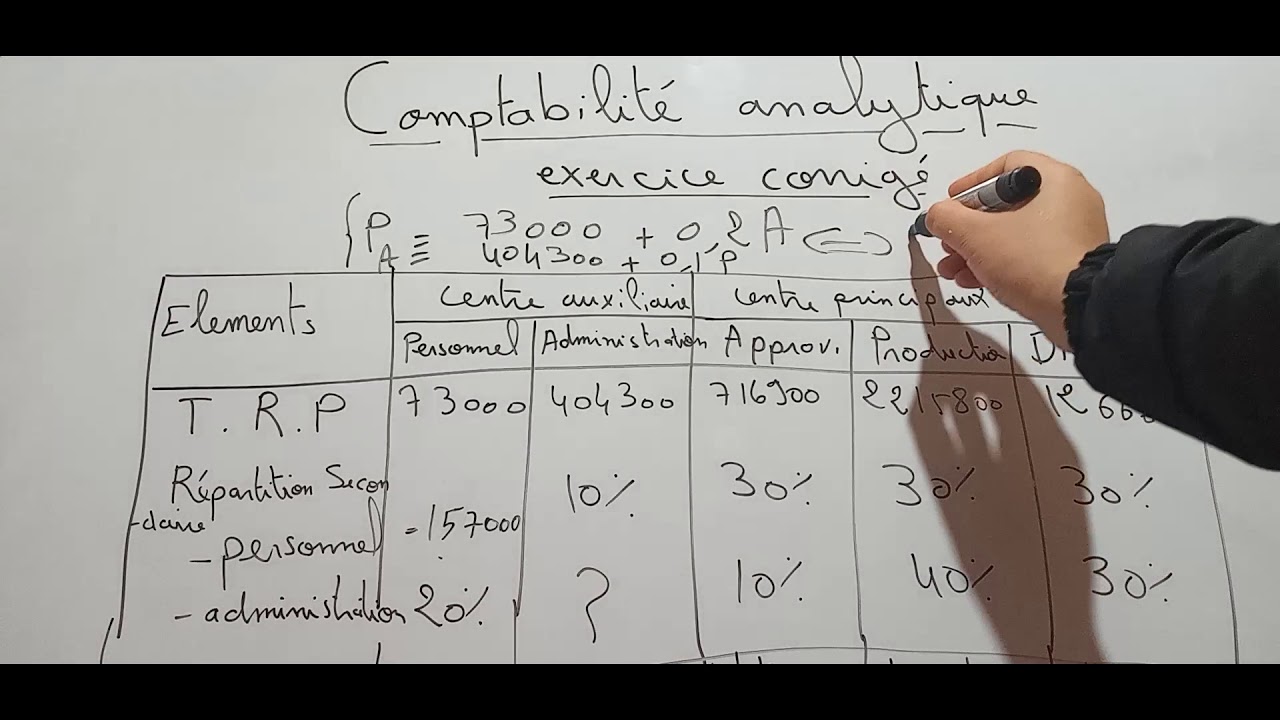 Comptabilité analytique
exercice corrigé
{ P = 73000 + 0,2A <=>
A = 404300 + 0,1P
Elements
Centre auxiliaire
Centre principaux
Personnel Administration Approv. Production
T.R.P 73000 404300 716900 2215800
Répartition Secon
-daire
- personnel = 157000 10% 30% 30% 30%
- administration 20% ? 10% 40% 30%